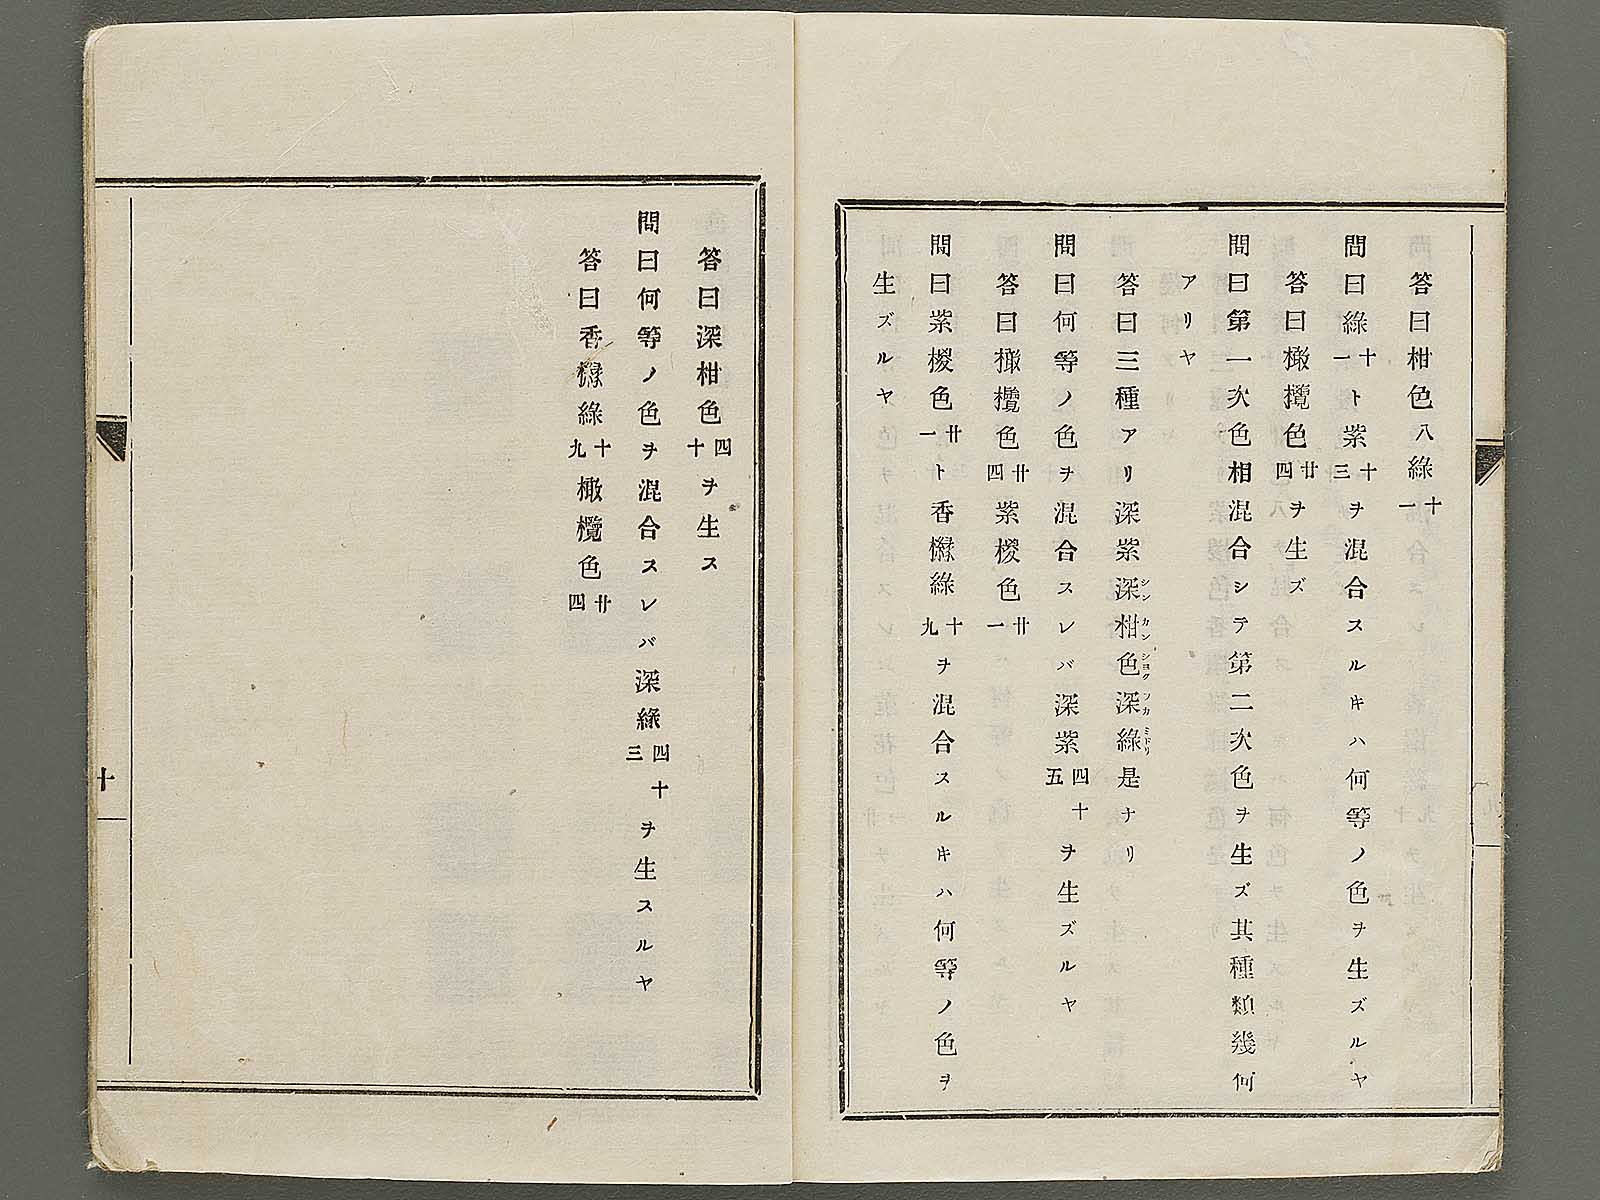 答曰柑色八綠十一
問曰綠十一ト紫十三ヲ混合スルキハ何等ノ色ヲ生ズルヤ
答曰橄欖色廿四ヲ生ズ
問曰第一次色相混合シテ第二次色ヲ生ズ其種類幾何
アリヤ
答曰三種アリ深紫深柑色深綠是ナリ
シンカンシヨクフカミドリ
問曰何等ノ色ヲ混合スレバ深紫四十五ヲ生ズルヤ
答曰橄欖色廿四紫椶色廿一
問曰紫椶色廿一ト香櫞綠十九ヲ混合スルキハ何等ノ色ヲ
生ズルヤ
答曰深柑色四十ヲ生ス
問曰何等ノ色ヲ混合スレバ深綠四十三ヲ生スルヤ
答曰香櫞綠十九橄欖色廿四
十